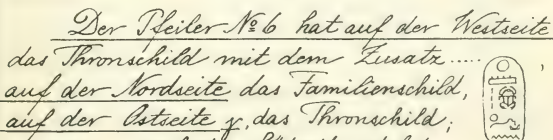 Der Pfeiler № 6 hat auf der Westseite
das Thronschild mit dem Zusatz.....
auf der Nordseite das Familienschild,
auf der Ostseite das Thronschild;